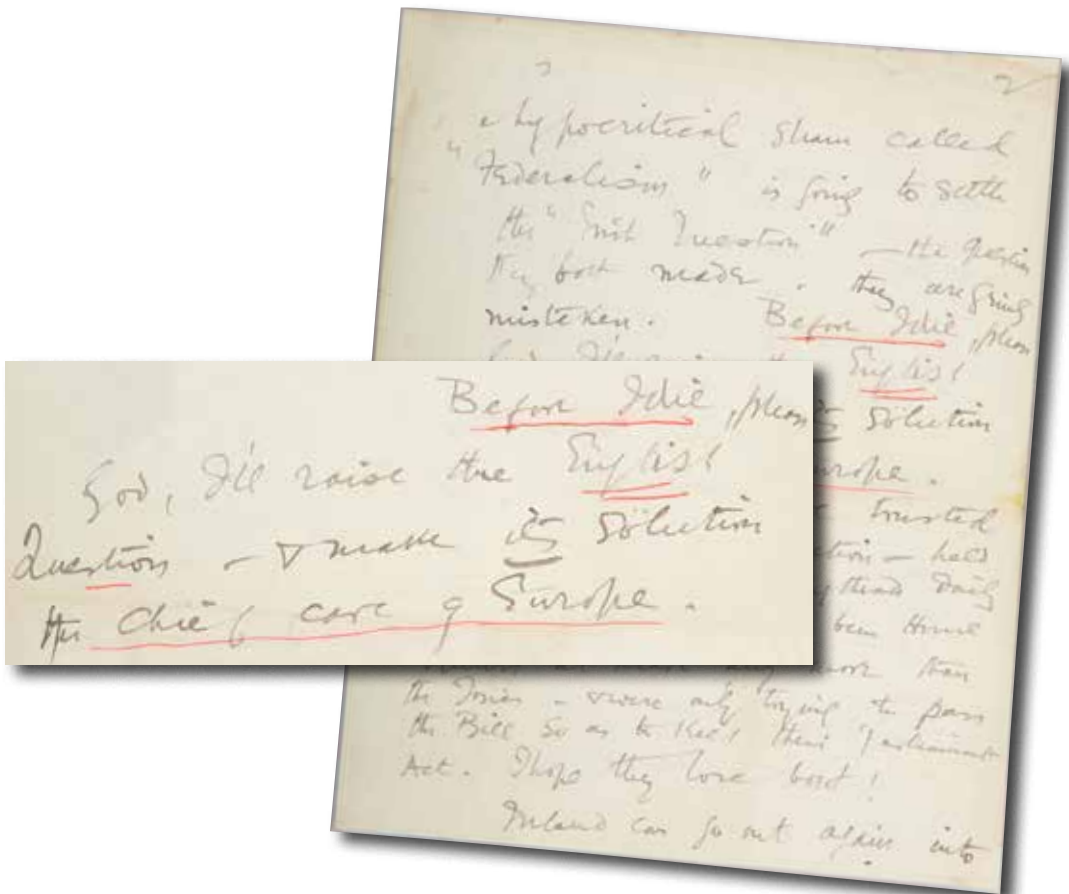 2
a hypocritical sham called
"Federalism" is going to settle
the "Irish Question" — the question
they both made. They are going
mistaken. Before I die, please
English
solution
Europe.
trusted
held
Daily
been Home
more than
the Tories - & were only trying to pass
the Bill so as to keep their Parliament
Act. I hope they lose both!
Ireland can go out again into
Before I die, please
God, I'll raise the English
Question - & make its solution
the Chief care of Europe.